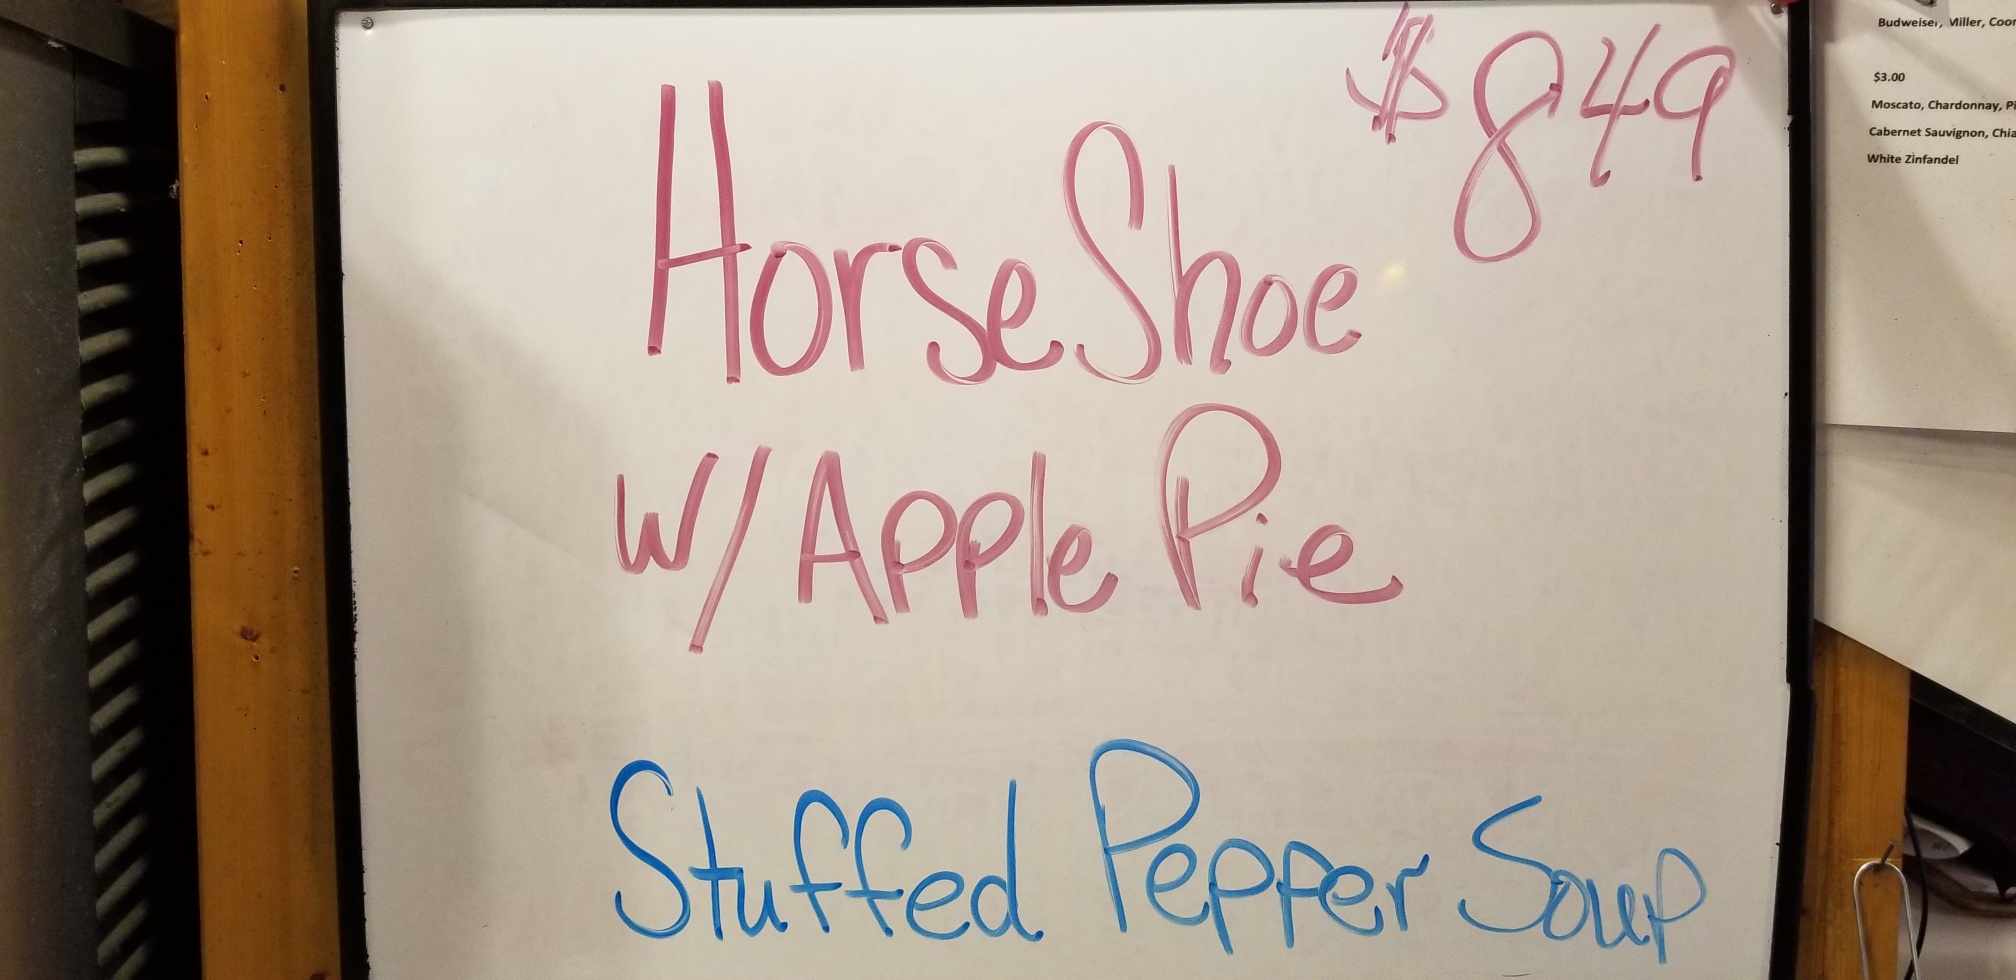 $849
HorseShoe
w/Apple Pie
Stuffed Pepper Soup
Budweiser, Miller,
$3.00
Moscato, Chardonnay,
Cabernet Sauvignon,
White Zinfandel